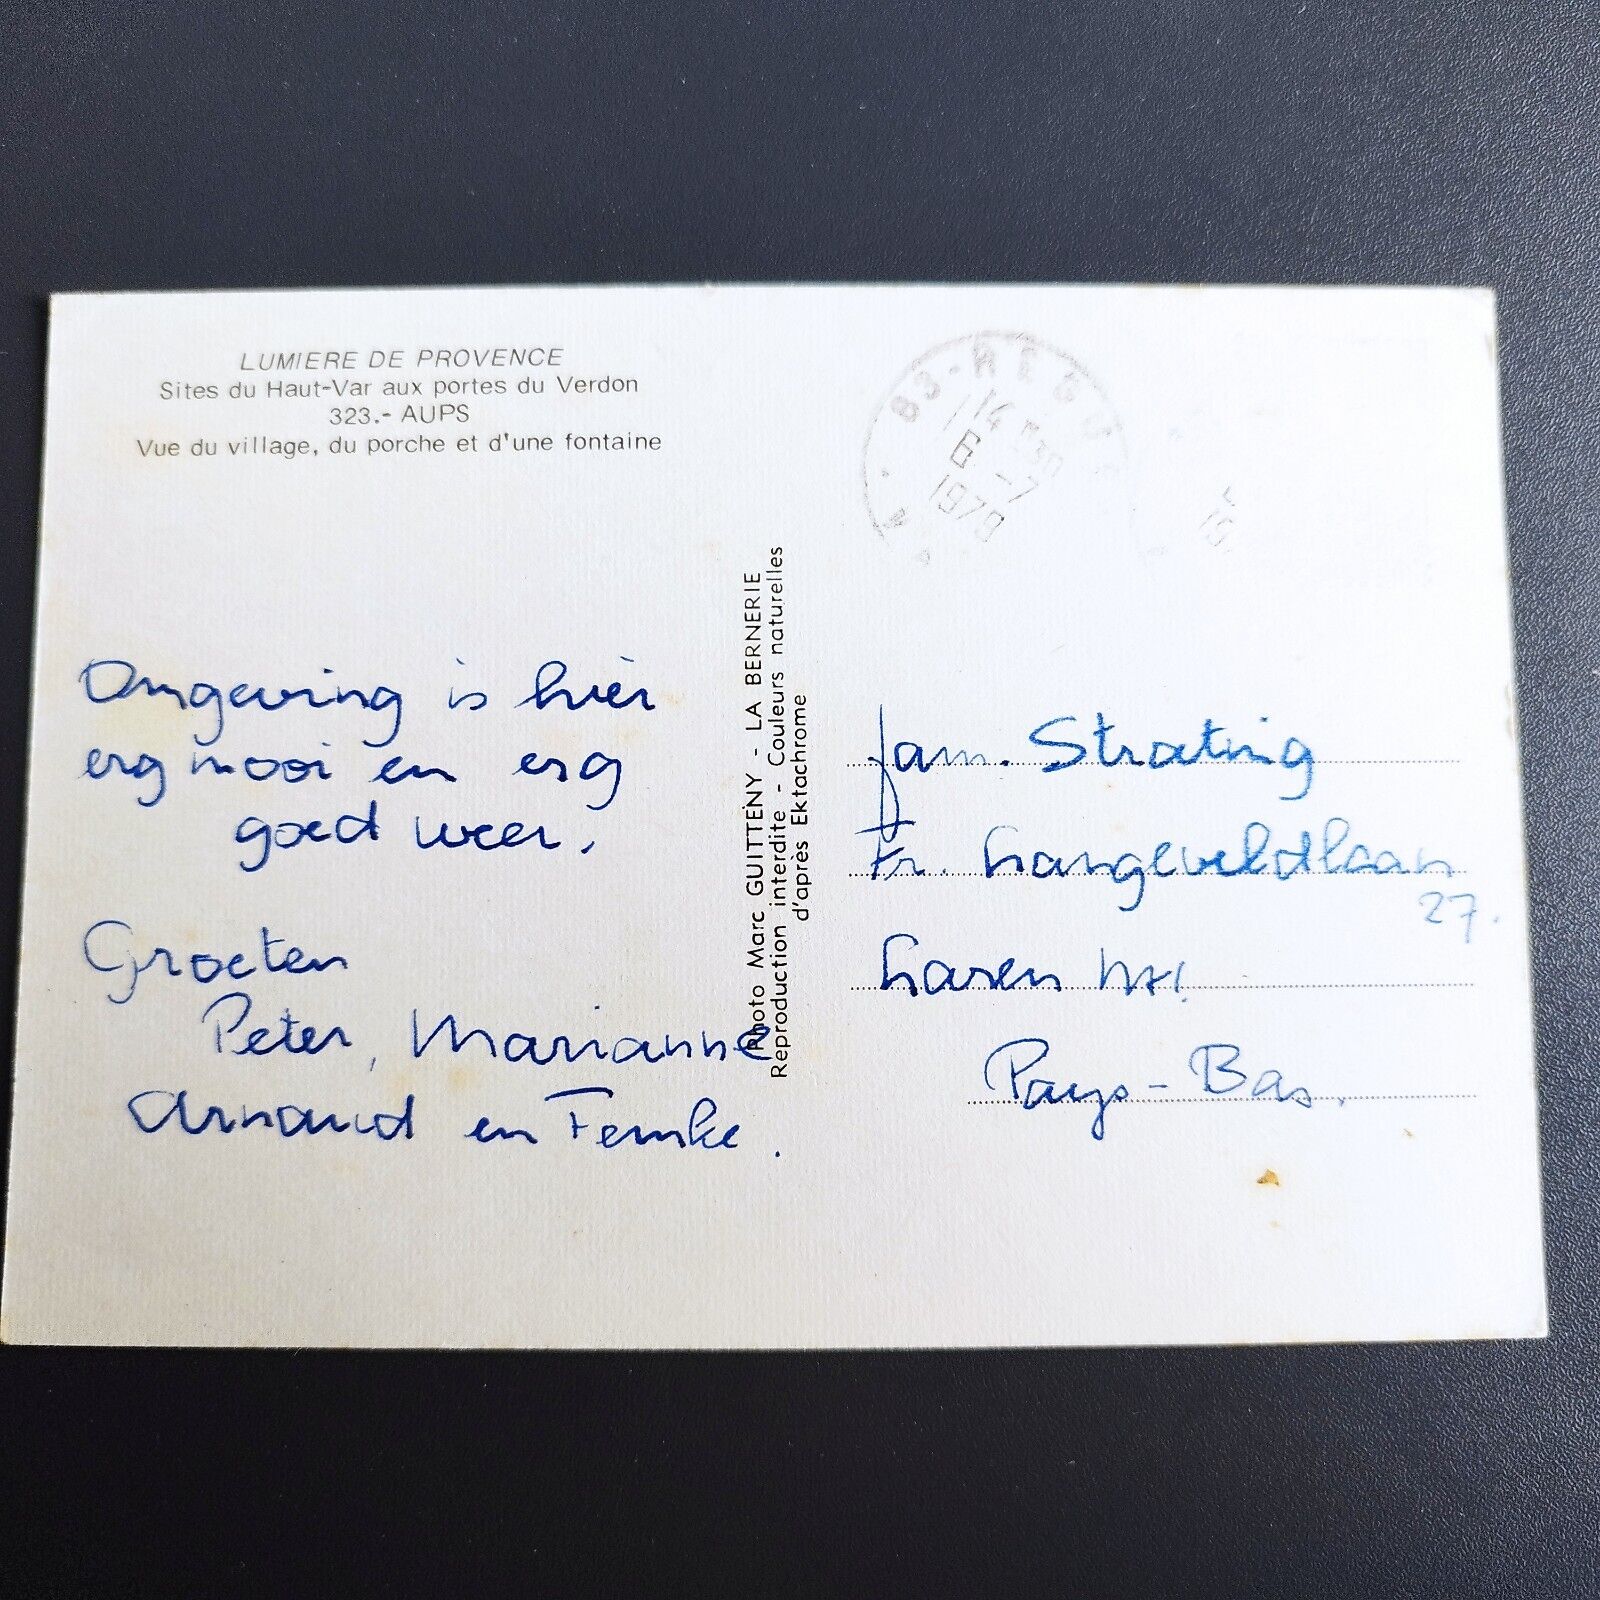 LUMIERE DE PROVENCE
Sites du Haut-Var aux portes du Verdon
323.- AUPS
Vue du village, du porche et d'une fontaine
Omgeving is hier
erg mooi en erg
goed weer.
Groeten
Peter, Marianne
Arnaud en Femke.
Photo Marc GUITTENY - LA BERNERIE
Reproduction interdite - Couleurs naturelles
d'après Ektachrome
83-REGU
14 H30
6-7
1979
fam. Strating
Fr. Langeveldlaan
27.
Laren NH.
Pays-Bas.